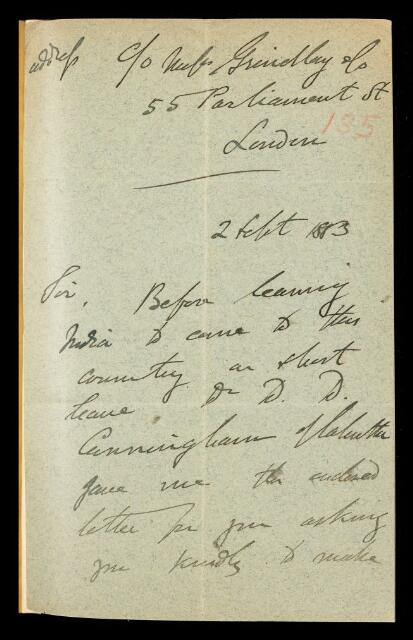 address c/o Messrs Grindlay & Co
55 Parliament St
135
London
2 Sept 1883
Sir,
Before leaving
India to come to this
country on short
leave Dr D. D.
Cunningham of Calcutta
gave me the enclosed
letter for you asking
you kindly to make